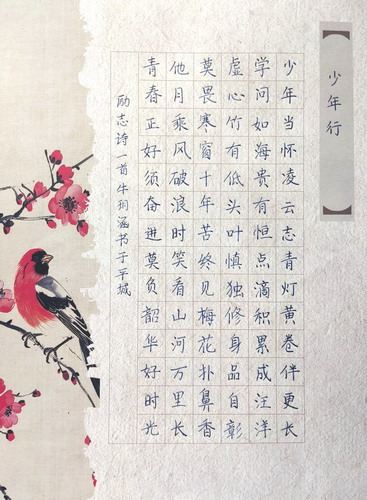 少年行
少年当怀凌云志青灯黄卷伴更长
学问如海贵有恒点滴积累成汪洋
虚心竹有低头叶慎独修身品自彰
莫畏寒窗十年苦终见梅花扑鼻香
他月乘风破浪时笑看山河万里长
青春正好须奋进莫负韶华好时光
励志诗一首牛涵书于平城